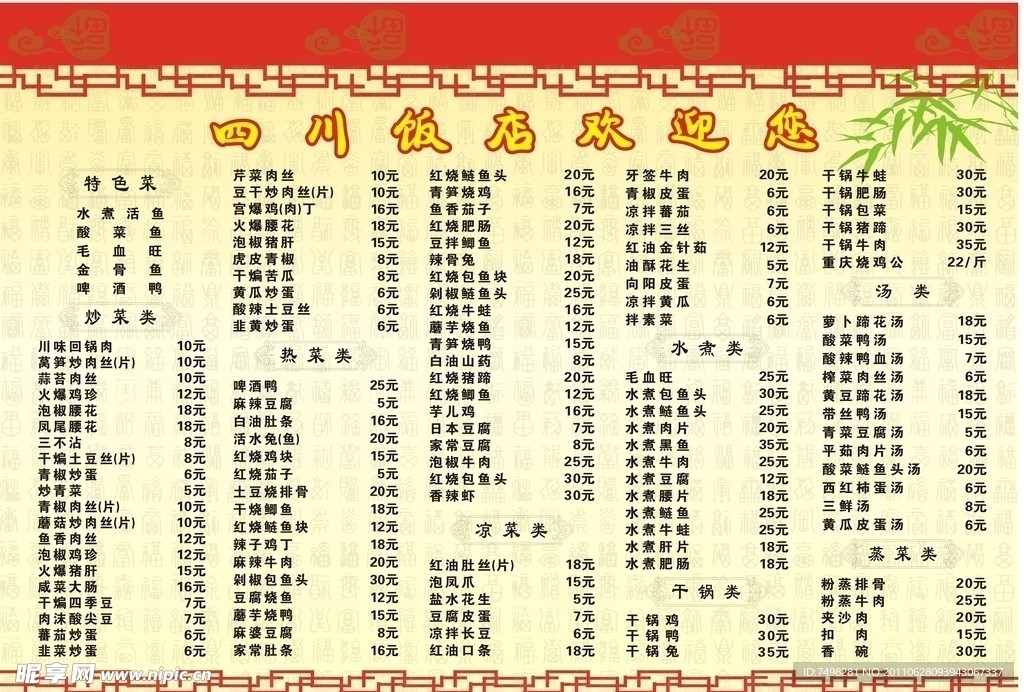 四川饭店欢迎您
特色菜
水煮活鱼
酸菜鱼
毛血旺
金骨鱼
啤酒鸭
炒菜类
川味回锅肉 10元
莴笋炒肉丝(片) 10元
蒜苔肉丝 10元
火爆鸡珍 12元
泡椒腰花 18元
凤尾腰花 18元
三不沾 8元
干煸土豆丝(片) 8元
青椒炒蛋 6元
炒青菜 5元
青椒肉丝(片) 10元
蘑菇炒肉丝(片) 10元
鱼香肉丝 12元
泡椒鸡珍 12元
火爆猪肝 15元
咸菜大肠 16元
干煸四季豆 7元
肉沫酸尖豆 7元
蕃茄炒蛋 6元
韭菜炒蛋 6元
芹菜肉丝 10元
豆干炒肉丝(片) 10元
宫爆鸡(肉)丁 16元
火爆腰花 18元
泡椒猪肝 15元
虎皮青椒 8元
干煸苦瓜 8元
黄瓜炒蛋 6元
酸辣土豆丝 6元
韭黄炒蛋 6元
热菜类
啤酒鸭 25元
麻辣豆腐 5元
白油肚条 16元
活水兔(鱼) 20元
红烧鸡块 15元
红烧茄子 5元
土豆烧排骨 20元
干烧鲫鱼 18元
红烧鲢鱼块 12元
辣子鸡丁 18元
麻辣牛肉 20元
剁椒包鱼头 30元
豆腐烧鱼 12元
蘑芋烧鸭 15元
麻婆豆腐 8元
家常肚条 16元
红烧鲢鱼头 20元
青笋烧鸡 16元
鱼香茄子 7元
红烧肥肠 20元
豆拌鲫鱼 12元
辣骨兔 18元
红烧包鱼块 20元
剁椒鲢鱼头 25元
红烧牛蛙 16元
蘑芋烧鱼 12元
青笋烧鸭 15元
白油山药 8元
红烧猪蹄 20元
红烧鲫鱼 12元
芋儿鸡 16元
日本豆腐 7元
家常豆腐 8元
泡椒牛肉 25元
红烧包鱼头 30元
香辣虾 30元
凉菜类
红油肚丝(片) 18元
泡凤爪 15元
盐水花生 5元
豆腐皮蛋 7元
凉拌长豆 6元
红油口条 18元
牙签牛肉 20元
青椒皮蛋 6元
凉拌蕃茄 6元
凉拌三丝 6元
红油金针茹 12元
油酥花生 5元
向阳皮蛋 7元
凉拌黄瓜 6元
拌素菜 6元
水煮类
毛血旺 25元
水煮包鱼头 30元
水煮鲢鱼头 25元
水煮肉片 20元
水煮黑鱼 35元
水煮牛肉 25元
水煮豆腐 12元
水煮腰片 18元
水煮鲢鱼 25元
水煮牛蛙 25元
水煮肝片 18元
水煮肥肠 18元
干锅类
干锅鸡 30元
干锅鸭 30元
干锅兔 35元
干锅牛蛙 30元
干锅肥肠 30元
干锅包菜 15元
干锅猪蹄 30元
干锅牛肉 35元
重庆烧鸡公 22/斤
汤类
萝卜蹄花汤 18元
酸菜鸭汤 15元
酸辣鸭血汤 7元
榨菜肉丝汤 6元
黄豆蹄花汤 18元
带丝鸭汤 15元
青菜豆腐汤 5元
平茹肉片汤 6元
酸菜鲢鱼头汤 20元
西红柿蛋汤 6元
三鲜汤 8元
黄瓜皮蛋汤 6元
蒸菜类
粉蒸排骨 20元
粉蒸牛肉 25元
夹沙肉 20元
扣肉 15元
香碗 30元
昵享网 www.nipic.cn
ID:7498281 NO:20110628093943067337